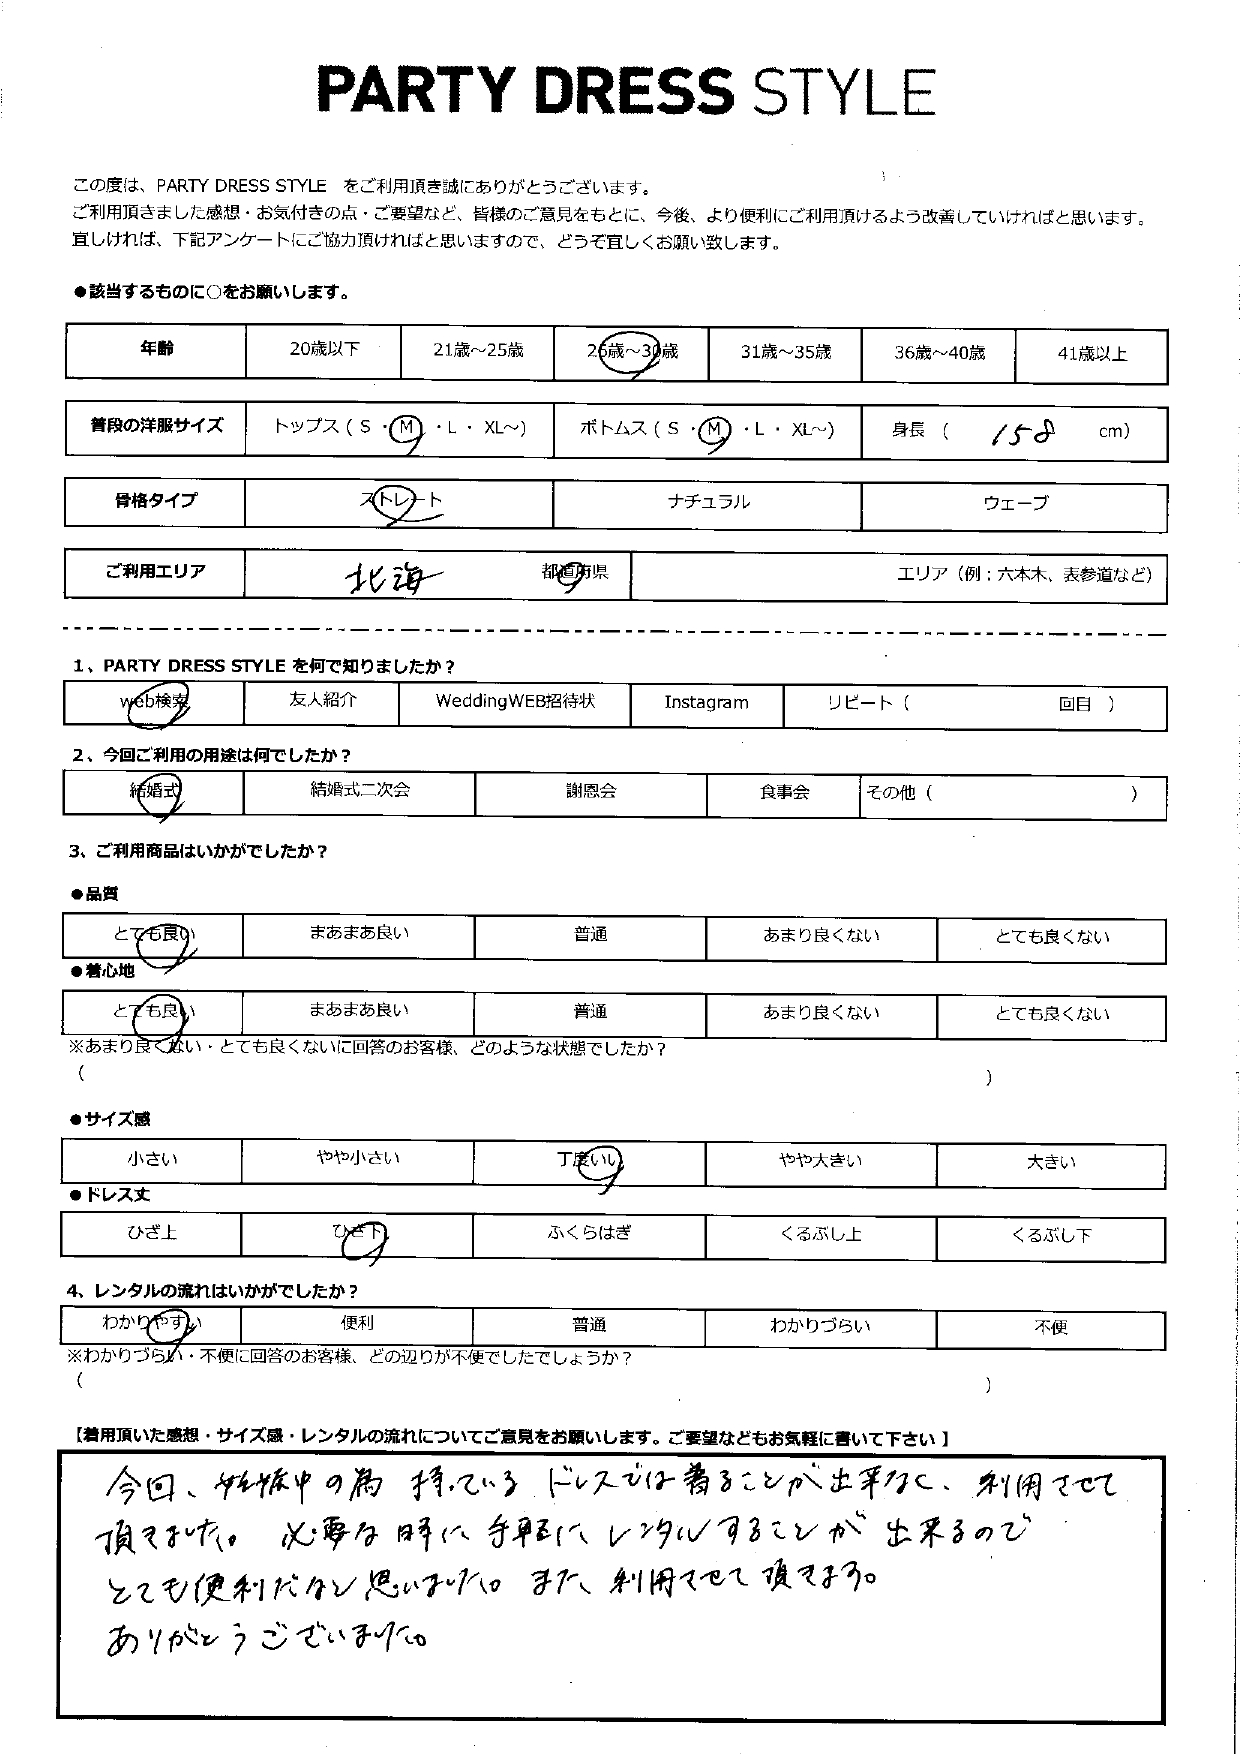 PARTY DRESS STYLE
この度は、PARTY DRESS STYLE をご利用頂き誠にありがとうございます。
ご利用頂きました感想・お気付きの点・ご要望など、皆様のご意見をもとに、今後、より便利にご利用頂けるよう改善していければと思います。
宜しければ、下記アンケートにご協力頂ければと思いますので、どうぞ宜しくお願い致します。
●該当するものに○をお願いします。
年齢 20歳以下 21歳～25歳 26歳～30歳 31歳～35歳 36歳～40歳 41歳以上
普段の洋服サイズ トップス ( S ・ M ・ L ・ XL～) ボトムス ( S ・ M ・ L ・ XL～) 身長 ( 158 cm)
骨格タイプ ストレート ナチュラル ウェーブ
ご利用エリア 北海 都道府県 エリア（例：六本木、表参道など）
1、PARTY DRESS STYLE を何で知りましたか？
web検索 友人紹介 WeddingWEB招待状 Instagram リピート（ 回目 ）
2、今回ご利用の用途は何でしたか？
結婚式 結婚式二次会 謝恩会 食事会 その他（ ）
3、ご利用商品はいかがでしたか？
●品質
とても良い まあまあ良い 普通 あまり良くない とても良くない
●着心地
とても良い まあまあ良い 普通 あまり良くない とても良くない
※あまり良くない・とても良くないに回答のお客様、どのような状態でしたか？
（ ）
●サイズ感
小さい やや小さい 丁度いい やや大きい 大きい
●ドレス丈
ひざ上 ひざ下 ふくらはぎ くるぶし上 くるぶし下
4、レンタルの流れはいかがでしたか？
わかりやすい 便利 普通 わかりづらい 不便
※わかりづらい・不便に回答のお客様、どの辺りが不便でしたでしょうか？
（ ）
【着用頂いた感想・サイズ感・レンタルの流れについてご意見をお願いします。ご要望などもお気軽に書いて下さい 】
今回、妊娠中の為 持っている ドレスでは着ることが出来なく、利用させて
頂きました。 必要な時に 手軽に レンタルすることが 出来るので
とても便利だなと思いました。また、利用させて頂きます。
ありがとうございました。